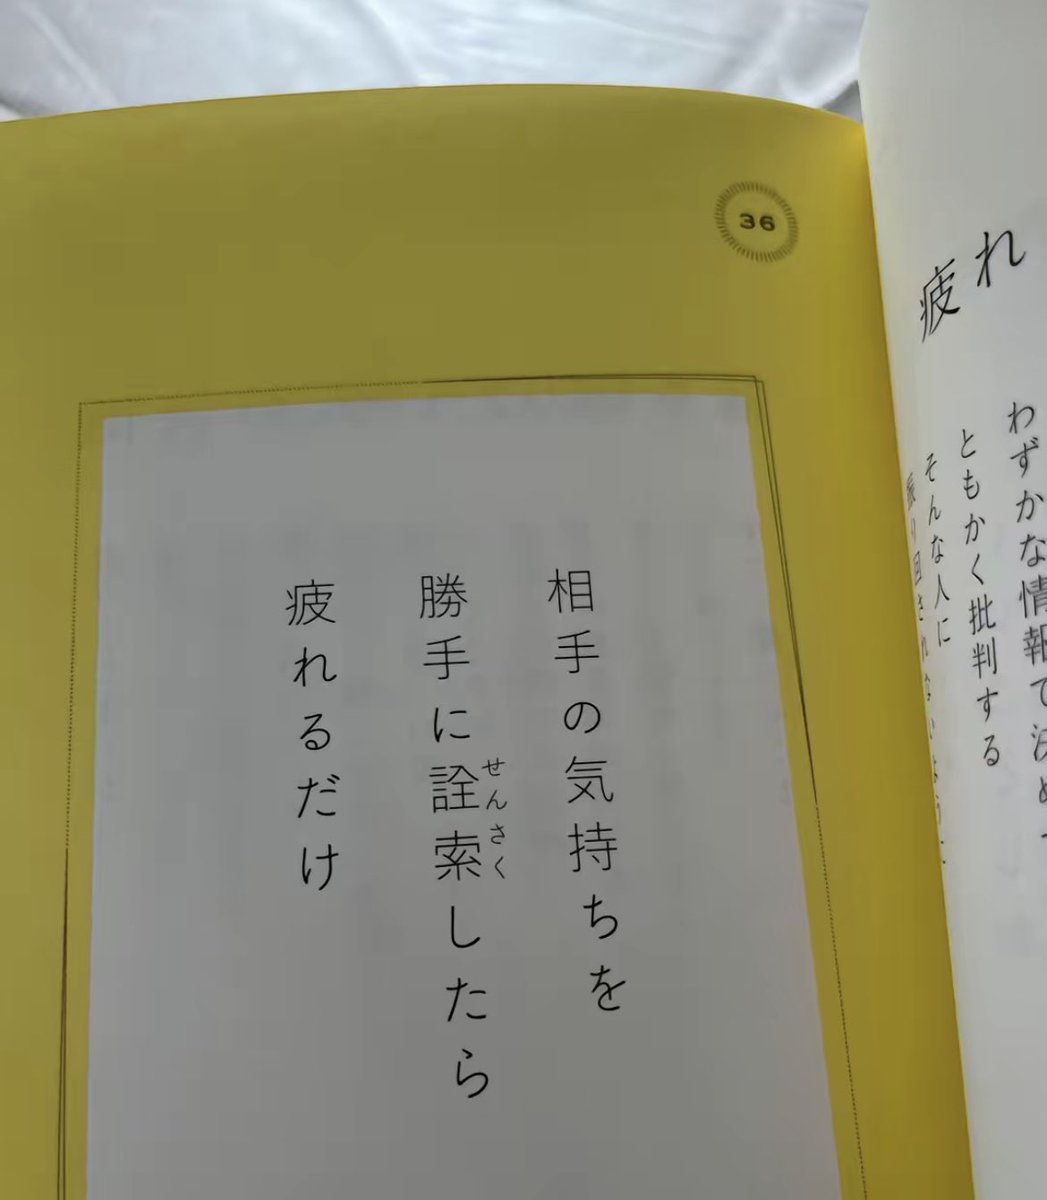 36
相手の気持ちを
勝手に詮索したら
せんさく
疲れるだけ
疲れ
わずかな情報で決め
ともかく批判する
そんな人に
振り回され